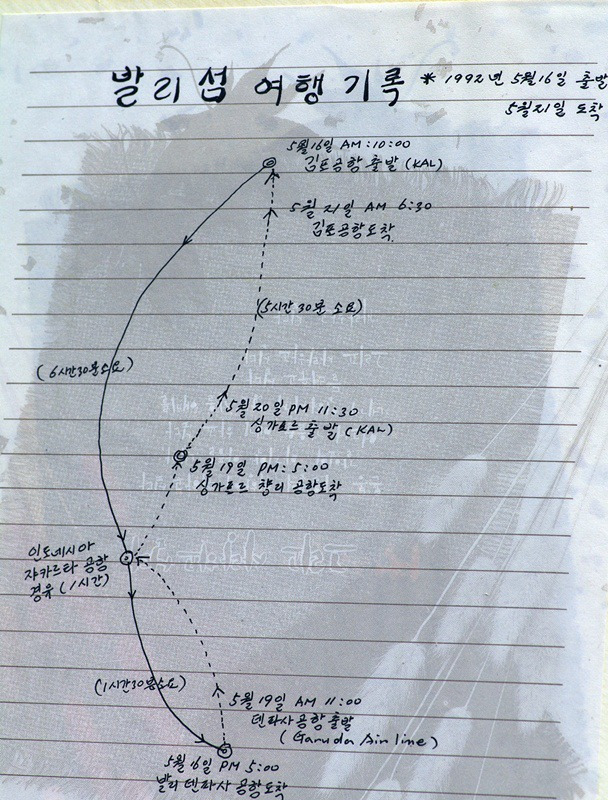 발리섬 여행기록 * 1992년 5월16일 출발
5월21일 도착
5월16일 AM:10:00
김포공항 출발 (KAL)
5월 21일 AM 6:30
김포공항도착.
(5시간 30분 소요)
(6시간30분소요)
5월 20일 PM 11:30
싱가포르 출발 (KAL)
5월 19일 PM:5:00
싱가포르 챵리 공항도착
인도네시아
쟈카르타 공항
경유 (1시간)
(1시간30분소요)
5월 19일 AM 11:00
덴파사공항출발
(Garuda Air line)
5월 16일 PM 5:00
발리 덴파사 공항도착